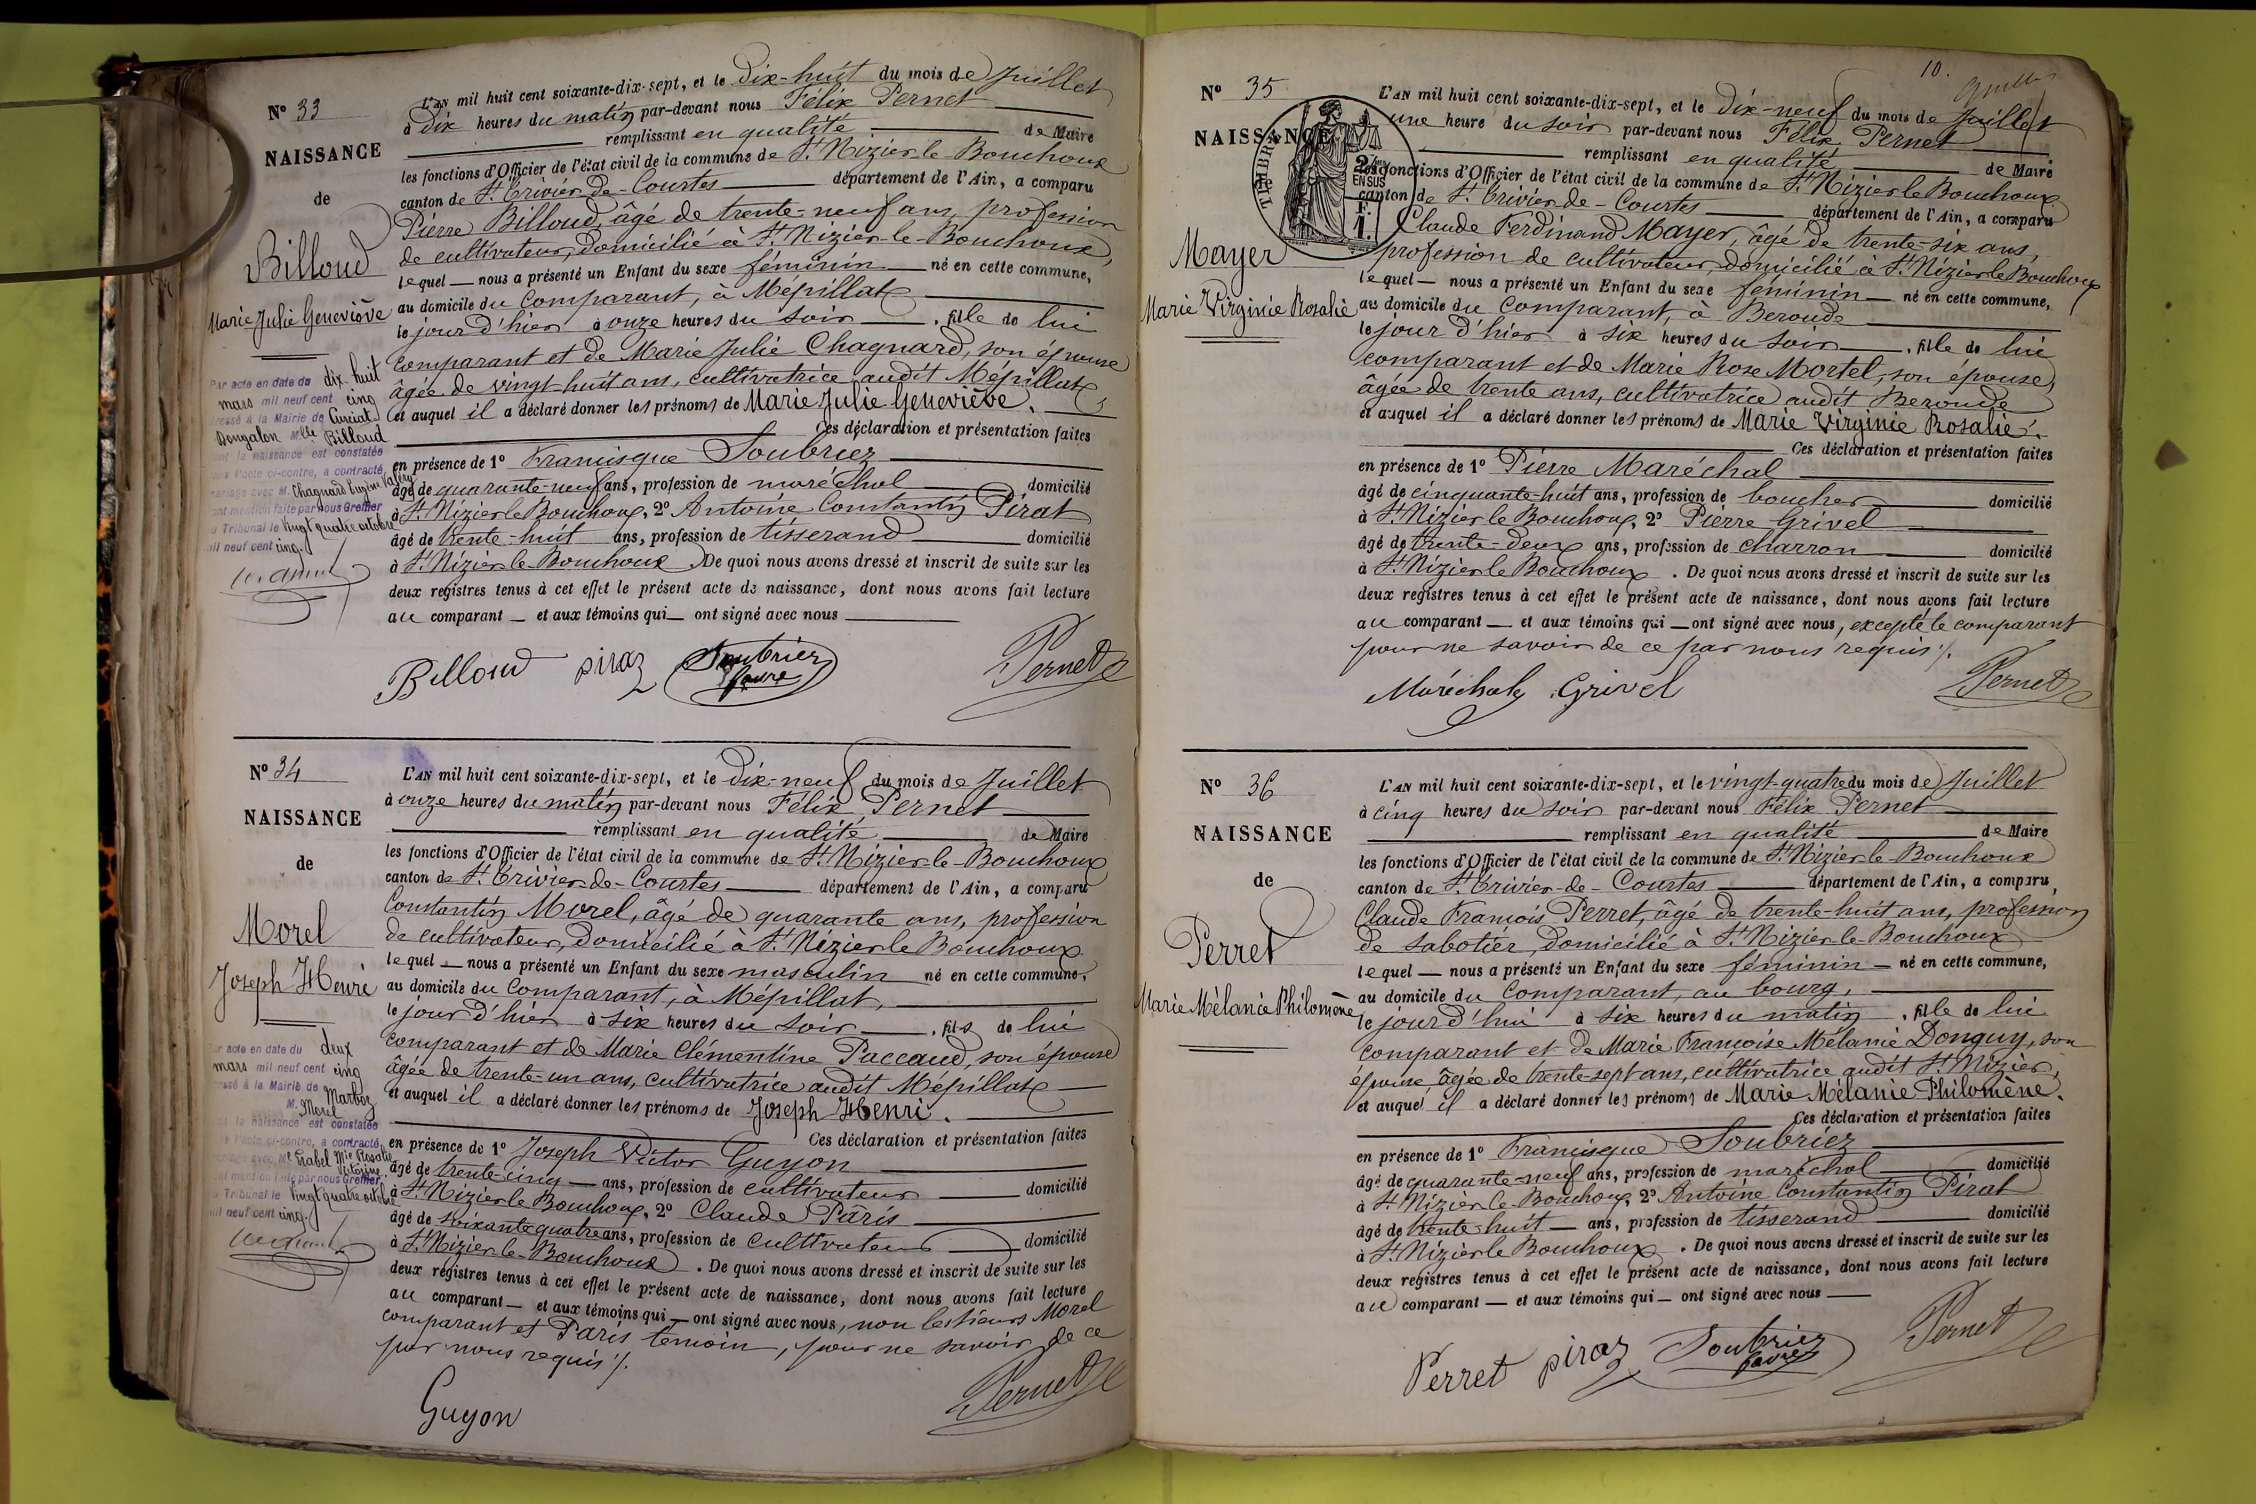 N° 33
NAISSANCE
de
Billoud
Marie Julie Geneviève
Par acte en date du dix-huit
mars mil neuf cent cinq
dressé à la Mairie de Curciat
Dongalon Mlle Billoud
dont la naissance est constatée
dans l'acte ci-contre, a contracté
mariage avec M. Chagnard Eugène Valéry
dont mention faite par nous Greffier
du Tribunal le vingt quatre octobre
mil neuf cent cinq.
L'AN mil huit cent soixante-dix-sept, et le dix-huit du mois de Juillet
à dix heures du matin par-devant nous Félix Pernet
remplissant en qualité de Maire
les fonctions d'Officier de l'état civil de la commune de St Nizier le Bouchoux
canton de St Trivier-de-Courtes département de l'Ain, a comparu
Pierre Billoud, âgé de trente-neuf ans, profession
de cultivateur, domicilié à St Nizier-le-Bouchoux,
lequel nous a présenté un Enfant du sexe féminin né en cette commune,
au domicile du comparant, à Mépillat
le jour d'hier à onze heures du soir, fille de lui
comparant et de Marie Julie Chagnard, son épouse
âgée de vingt-huit ans, cultivatrice audit Mépillat
et auquel il a déclaré donner les prénoms de Marie Julie Geneviève.
Ces déclaration et présentation faites
en présence de 1° Francisque Soubriez
âgé de quarante-neuf ans, profession de maréchal domicilié
à St Nizier le Bouchoux, 2° Antoine Constantin Pirat
âgé de trente-huit ans, profession de tisserand domicilié
à St Nizier-le-Bouchoux. De quoi nous avons dressé et inscrit de suite sur les
deux registres tenus à cet effet le présent acte de naissance, dont nous avons fait lecture
au comparant et aux témoins qui ont signé avec nous
Billoud piraz Soubriez favre Pernet
N° 34
NAISSANCE
de
Morel
Joseph Henri
Par acte en date du deux
mars mil neuf cent cinq
dressé à la Mairie de Marboz
M. Morel
dont la naissance est constatée
dans l'acte ci-contre, a contracté
mariage avec Mlle Erabel Mie Rosalie
Victorine
dont mention faite par nous Greffier
du Tribunal le vingt quatre octobre
mil neuf cent cinq.
L'AN mil huit cent soixante-dix-sept, et le dix-neuf du mois de Juillet
à onze heures du matin par-devant nous Félix Pernet
remplissant en qualité de Maire
les fonctions d'Officier de l'état civil de la commune de St Nizier-le-Bouchoux
canton de St Trivier-de-Courtes département de l'Ain, a comparu
Constantin Morel, âgé de quarante ans, profession
de cultivateur, domicilié à St Nizier le Bouchoux
lequel nous a présenté un Enfant du sexe masculin né en cette commune,
au domicile du comparant, à Mépillat,
le jour d'hier à six heures du soir, fils de lui
comparant et de Marie Clémentine Paccaud, son épouse
âgée de trente-un ans, cultivatrice audit Mépillat
et auquel il a déclaré donner les prénoms de Joseph Henri.
Ces déclaration et présentation faites
en présence de 1° Joseph Victor Guyon
âgé de trente-cinq ans, profession de cultivateur domicilié
à St Nizier le Bouchoux, 2° Claude Pâris
âgé de soixante quatre ans, profession de cultivateur domicilié
à St Nizier-le-Bouchoux. De quoi nous avons dressé et inscrit de suite sur les
deux registres tenus à cet effet le présent acte de naissance, dont nous avons fait lecture
au comparant et aux témoins qui ont signé avec nous, non les sieurs Morel
comparant et Pâris témoin, pour ne savoir de ce
par nous requis ./.
Guyon Pernet
10.
N° 35
NAISSANCE
TIMBRE
2/10mes
EN SUS
F.
1.
Mayer
Marie Virginie Rosalie
L'AN mil huit cent soixante-dix-sept, et le dix-neuf du mois de Juillet
une heure du soir par-devant nous Félix Pernet
remplissant en qualité de Maire
les fonctions d'Officier de l'état civil de la commune de St Nizier le Bouchoux
canton de St Trivier-de-Courtes département de l'Ain, a comparu
Claude Ferdinand Mayer, âgé de trente-six ans,
profession de cultivateur, domicilié à St Nizier le Bouchoux
lequel nous a présenté un Enfant du sexe féminin né en cette commune,
au domicile du comparant, à Beroude
le jour d'hier à six heures du soir, fille de lui
comparant et de Marie Rose Mortel, son épouse,
âgée de trente ans, cultivatrice audit Beroude
et auquel il a déclaré donner les prénoms de Marie Virginie Rosalie.
Ces déclaration et présentation faites
en présence de 1° Pierre Maréchal
âgé de cinquante-huit ans, profession de boucher domicilié
à St Nizier le Bouchoux, 2° Pierre Grivel
âgé de trente-deux ans, profession de charron domicilié
à St Nizier le Bouchoux. De quoi nous avons dressé et inscrit de suite sur les
deux registres tenus à cet effet le présent acte de naissance, dont nous avons fait lecture
au comparant et aux témoins qui ont signé avec nous, excepté le comparant
pour ne savoir de ce par nous requis ./.
Maréchal Grivel Pernet
N° 36
NAISSANCE
de
Perret
Marie Mélanie Philomène
L'AN mil huit cent soixante-dix-sept, et le vingt-quatre du mois de Juillet
à cinq heures du soir par-devant nous Félix Pernet
remplissant en qualité de Maire
les fonctions d'Officier de l'état civil de la commune de St Nizier-le Bouchoux
canton de St Trivier-de-Courtes département de l'Ain, a comparu,
Claude François Perret, âgé de trente-huit ans, profession
de sabotier, domicilié à St Nizier-le-Bouchoux
lequel nous a présenté un Enfant du sexe féminin né en cette commune,
au domicile du comparant, au bourg,
le jour d'hui à six heures du matin, fille de lui
comparant et de Marie Françoise Mélanie Donguy, son
épouse âgée de trente-sept ans, cultivatrice audit St Nizier,
et auquel il a déclaré donner les prénoms de Marie Mélanie Philomène.
Ces déclaration et présentation faites
en présence de 1° Francisque Soubriez
âgé de quarante-neuf ans, profession de maréchal domicilié
à St Nizier-le-Bouchoux, 2° Antoine Constantin Pirat
âgé de trente-huit ans, profession de tisserand domicilié
à St Nizier le Bouchoux. De quoi nous avons dressé et inscrit de suite sur les
deux registres tenus à cet effet le présent acte de naissance, dont nous avons fait lecture
au comparant et aux témoins qui ont signé avec nous
Perret piraz Soubriez favre Pernet